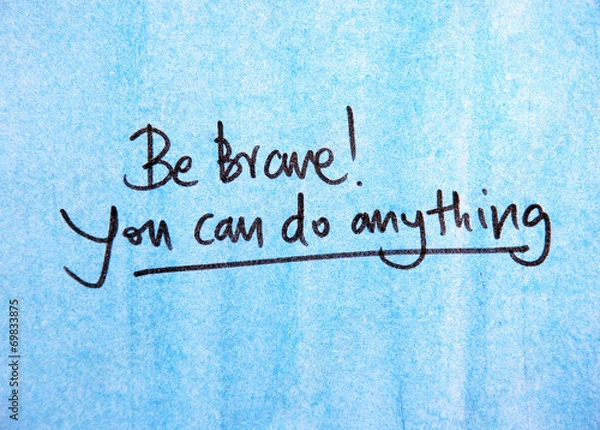 Be Brave!
You can do anything
Adobe Stock | #69833875